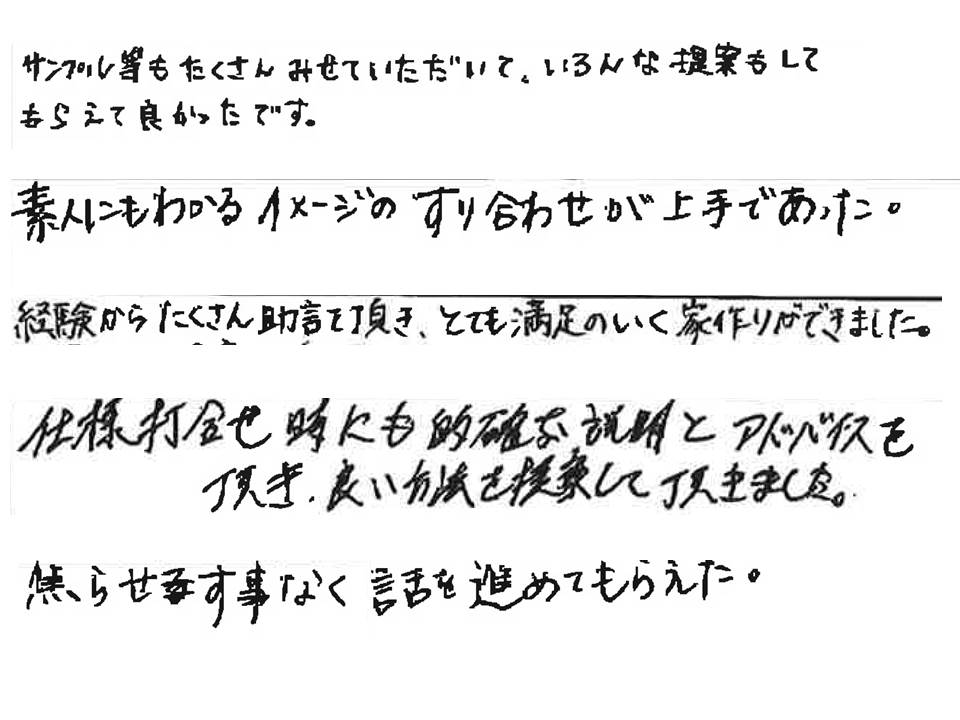 サンプル等もたくさんみせていただいて、いろんな提案もして
もらえて良かったです。
素人にもわかるイメージのすり合わせが上手であった。
経験からたくさん助言を頂き、とても満足のいく家作りができました。
仕様打合せ時にも的確な説明とアドバイスを
頂き、良い方法を提案して頂きました。
焦らせす事なく話を進めてもらえた。